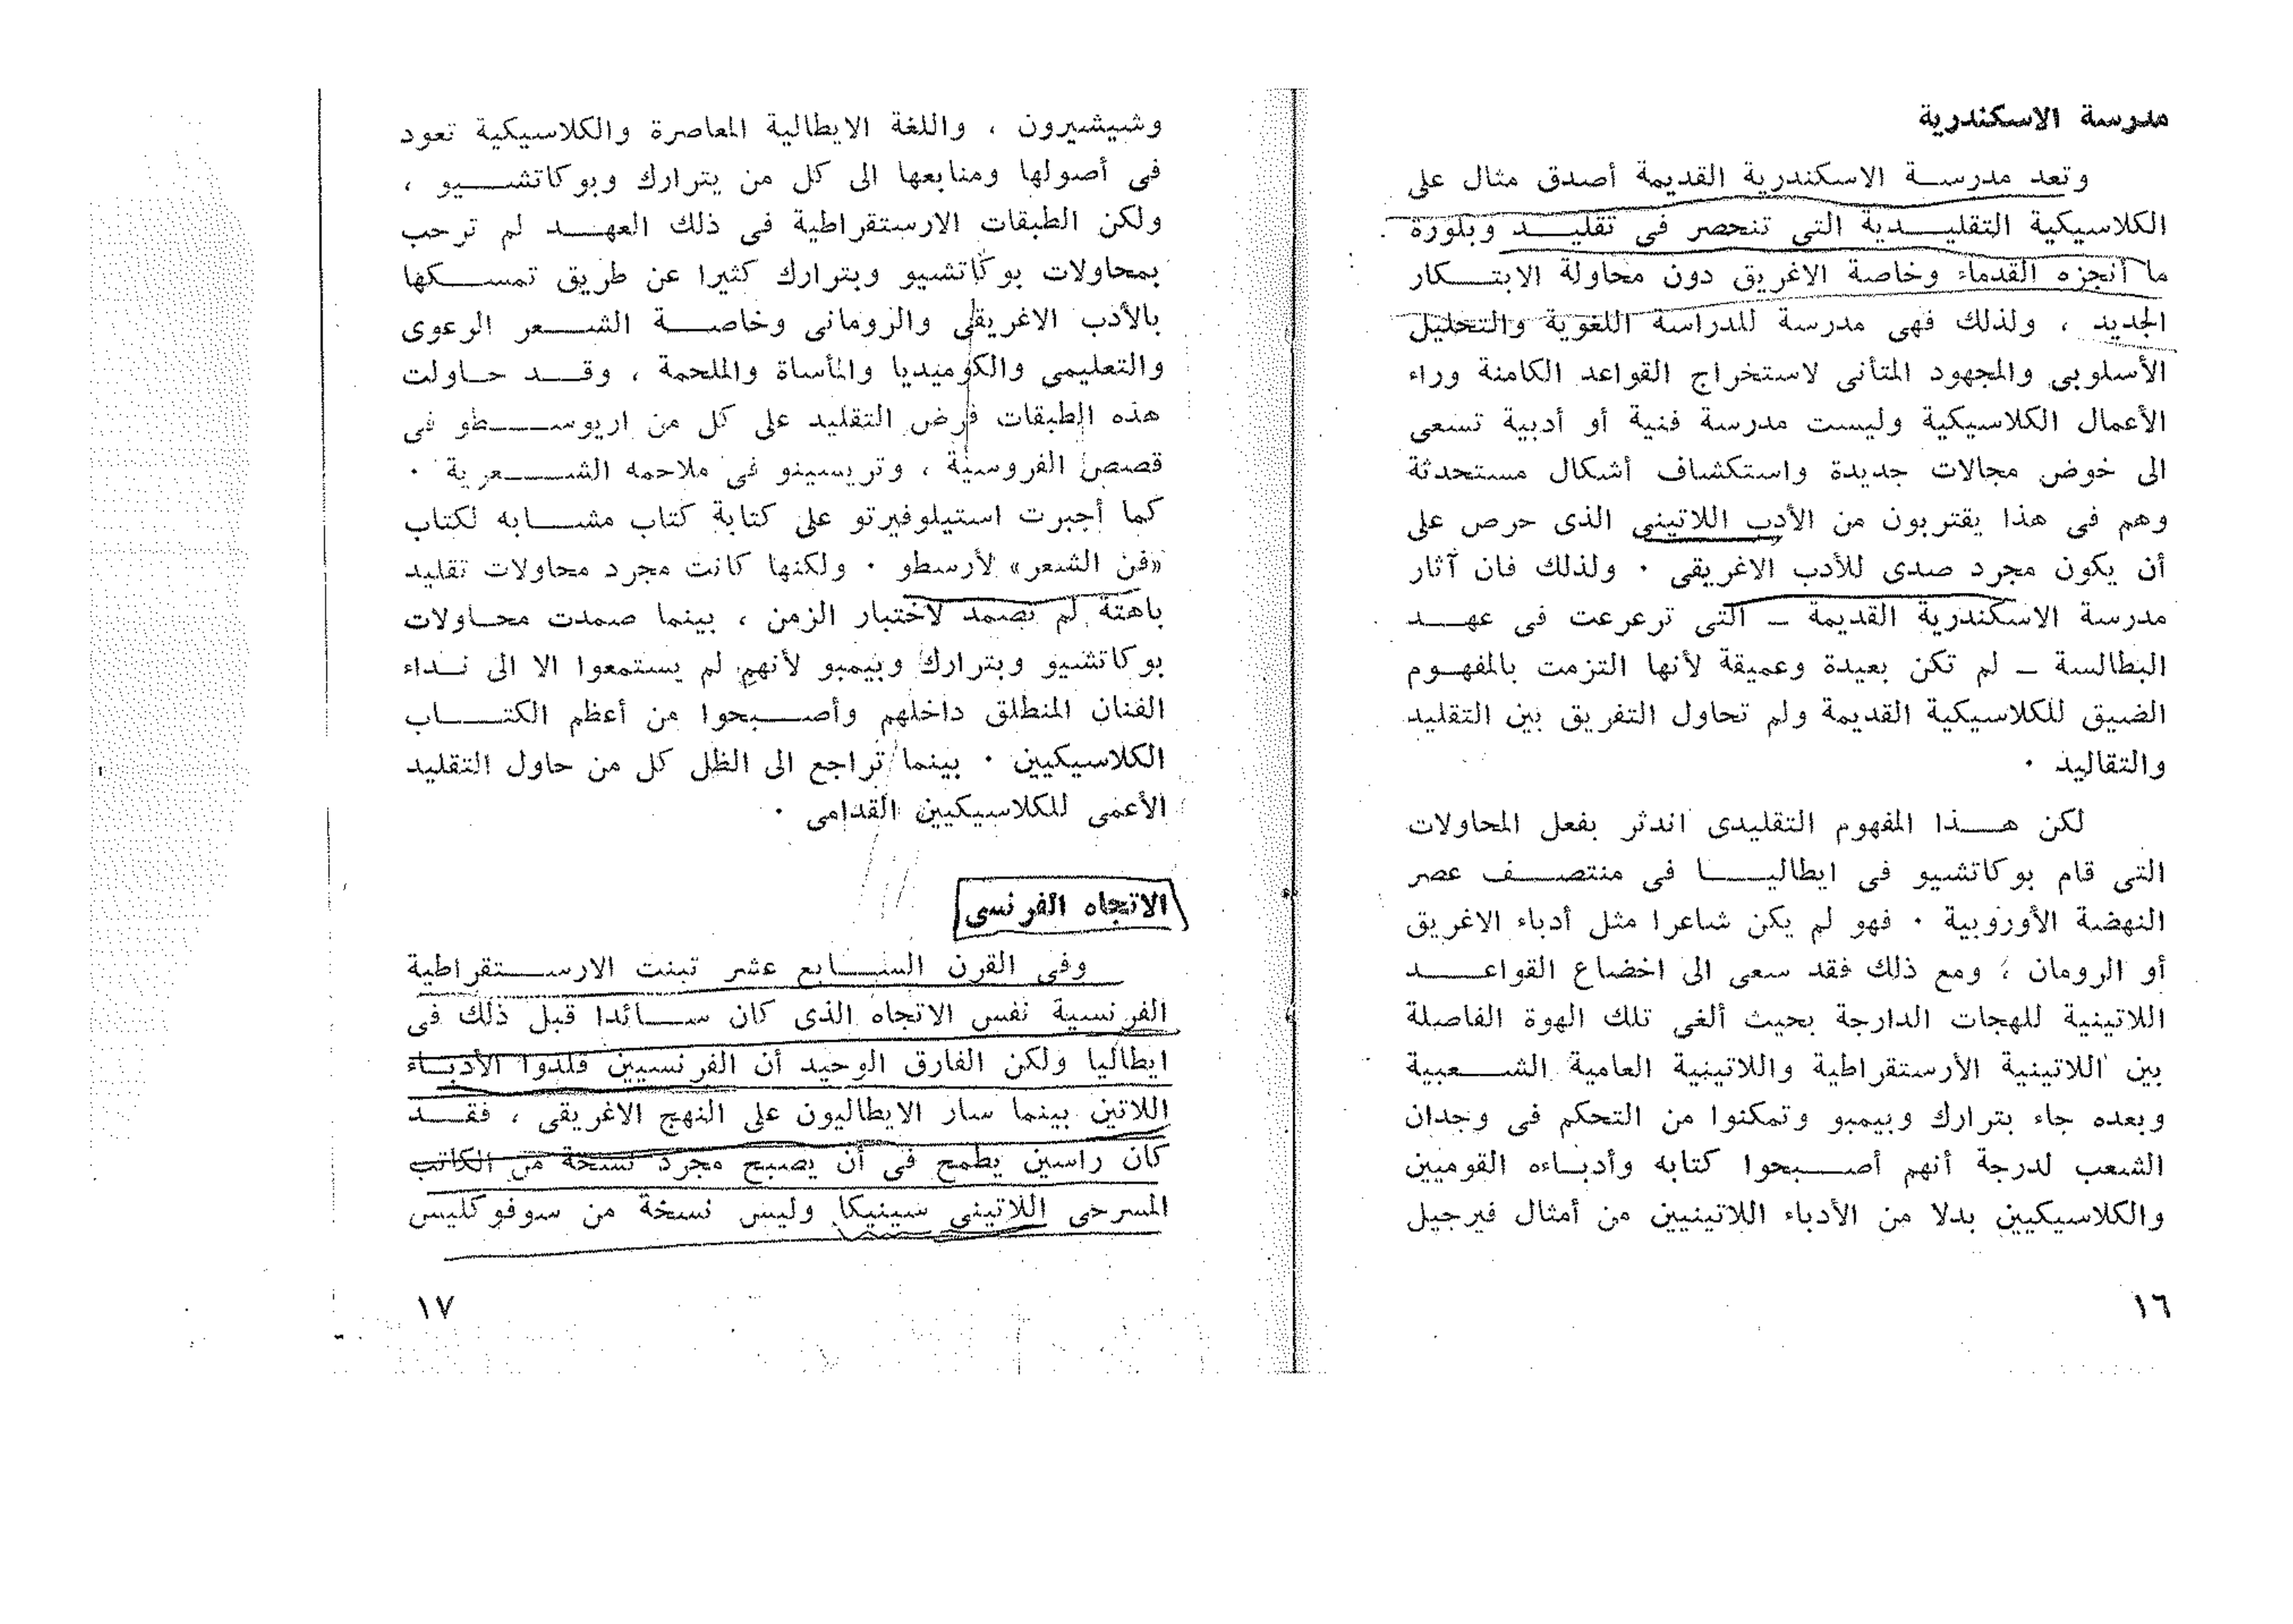 مدرسة الاسكندرية
وتعد مدرسة الاسكندرية القديمة أصدق مثال على
الكلاسيكية التقليدية التى تنحصر فى تقليد وبلورة
ما أنجزه القدماء وخاصة الاغريق دون محاولة الابتكار
الجديد ، ولذلك فهى مدرسة للدراسة اللغوية والتحليل
الأسلوبى والمجهود المتأنى لاستخراج القواعد الكامنة وراء
الأعمال الكلاسيكية وليست مدرسة فنية أو أدبية تسعى
الى خوض مجالات جديدة واستكشاف أشكال مستحدثة
وهم فى هذا يقتربون من الأدب اللاتينى الذى حرص على
أن يكون مجرد صدى للأدب الاغريقى . ولذلك فان آثار
مدرسة الاسكندرية القديمة ــ التى ترعرعت فى عهد
البطالسة ــ لم تكن بعيدة وعميقة لأنها التزمت بالمفهوم
الضيق للكلاسيكية القديمة ولم تحاول التفريق بين التقليد
والتقاليد .
لكن هذا المفهوم التقليدى اندثر بفعل المحاولات
التى قام بوكاتشيو فى ايطاليا فى منتصف عصر
النهضة الأوروبية . فهو لم يكن شاعرا مثل أدباء الاغريق
أو الرومان ، ومع ذلك فقد سعى الى اخضاع القواعد
اللاتينية للهجات الدارجة بحيث ألغى تلك الهوة الفاصلة
بين اللاتينية الأرستقراطية واللاتينية العامية الشعبية
وبعده جاء بترارك وبيمبو وتمكنوا من التحكم فى وجدان
الشعب لدرجة أنهم أصبحوا كتابه وأدباءه القوميين
والكلاسيكيين بدلا من الأدباء اللاتينيين من أمثال فيرجيل
١٦
وشيشيرون ، واللغة الايطالية المعاصرة والكلاسيكية تعود
فى أصولها ومنابعها الى كل من يترارك وبوكاتشيو ،
ولكن الطبقات الارستقراطية فى ذلك العهد لم ترحب
بمحاولات بوكاتشيو وبترارك كثيرا عن طريق تمسكها
بالأدب الاغريقى والرومانى وخاصة الشعر الرعوى
والتعليمى والكوميديا والمأساة والملحمة ، وقد حاولت
هذه الطبقات فرض التقليد على كل من اريوسطو فى
قصص الفروسية ، وتريسينو فى ملاحمه الشعرية .
كما أجبرت استيلوفيرتو على كتابة كتاب مشابه لكتاب
«فن الشعر» لأرسطو . ولكنها كانت مجرد محاولات تقليد
باهتة لم تصمد لاختبار الزمن ، بينما صمدت محاولات
بوكاتشيو وبترارك وبيمبو لأنهم لم يستمعوا الا الى نداء
الفنان المنطلق داخلهم وأصبحوا من أعظم الكتاب
الكلاسيكيين . بينما تراجع الى الظل كل من حاول التقليد
الأعمى للكلاسيكيين القدامى .
الاتجاه الفرنسى
وفى القرن السابع عشر تبنت الارستقراطية
الفرنسية نفس الاتجاه الذى كان سائدا قبل ذلك فى
ايطاليا ولكن الفارق الوحيد أن الفرنسيين قلدوا الأدباء
اللاتين بينما سار الايطاليون على النهج الاغريقى ، فقد
كان راسين يطمح فى أن يصبح مجرد نسخة من الكاتب
المسرحى اللاتينى سينيكا وليس نسخة من سوفوكليس
١٧